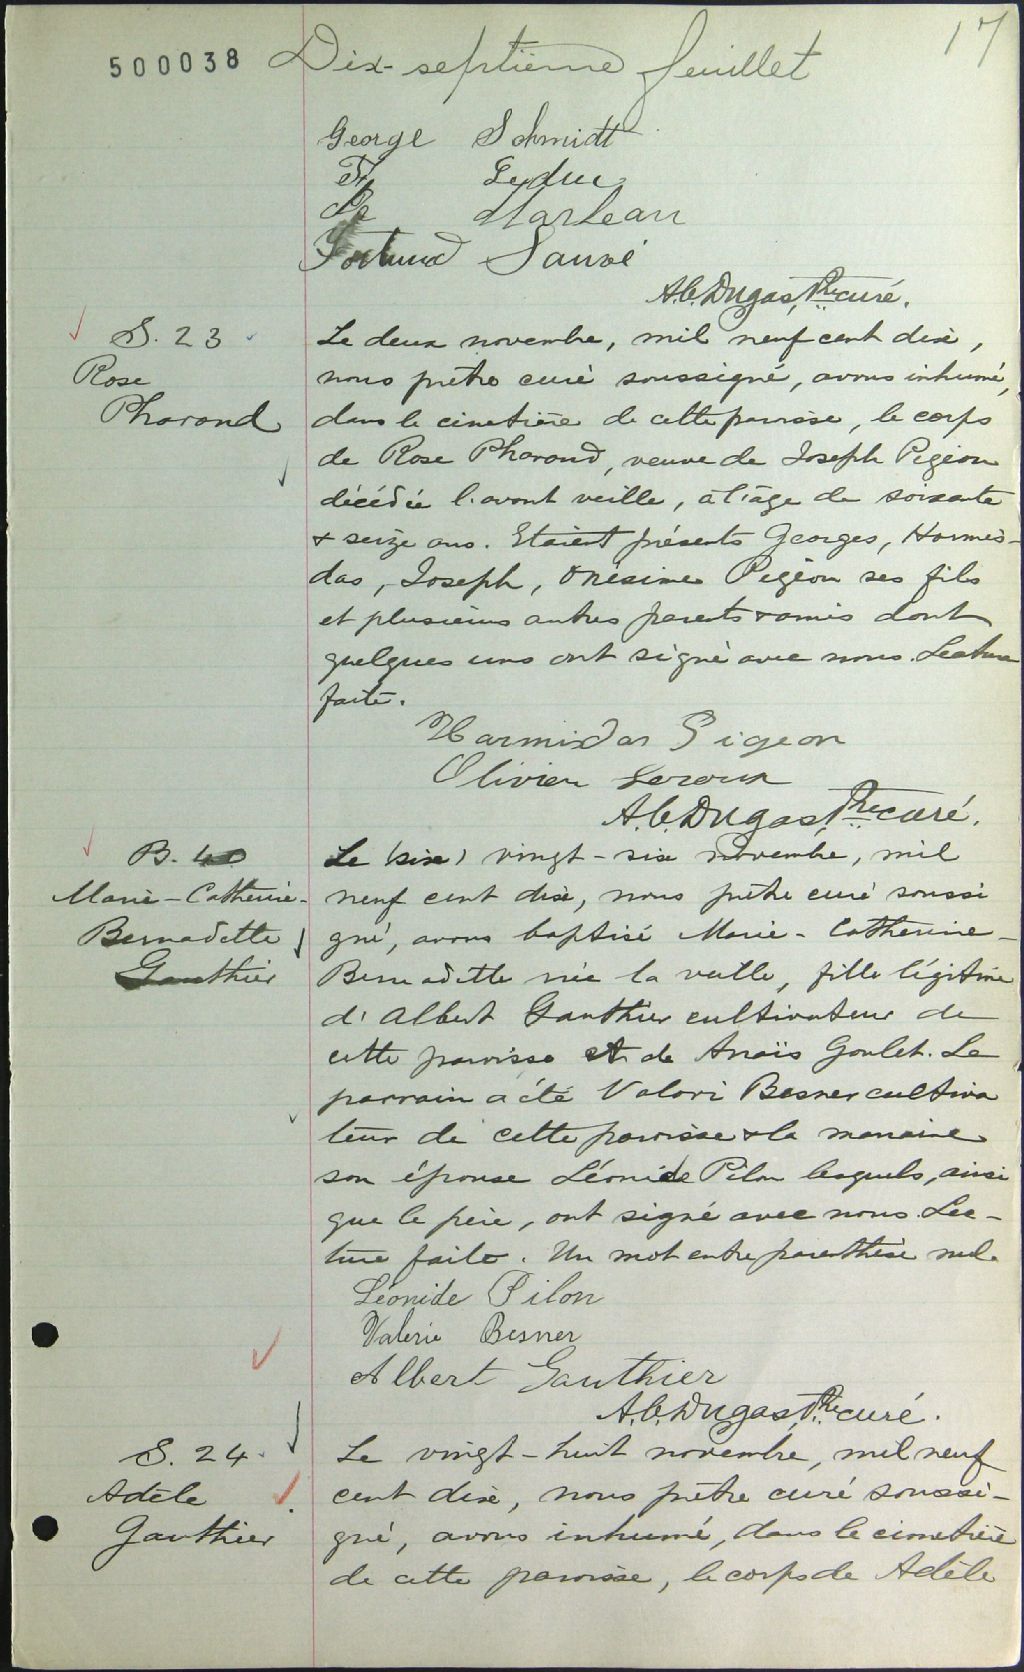 500038 Dix-septième feuillet 17
George Schmidt
Fx Leduc
Marleau
Fortunad Sauvé
A.C. Dugas, Ptre curé.
S. 23
Rose
Pharand
Le deux novembre, mil neuf cent dix,
nous prêtre curé soussigné, avons inhumé,
dans le cimetière de cette paroisse, le corps
de Rose Pharand, veuve de Joseph Pigeon
décédée l'avant veille, à l'âge de soixante
& seize ans. Etaient présents Georges, Hormis-
das, Joseph, Onésime Pigeon ses fils
et plusieurs autres parents & amis dont
quelques uns ont signé avec nous. Lecture
faite.
Harmidas Pigeon
Olivier Leroux
A.C. Dugas, Ptre curé.
B. 40
Marie-Catherine-
Bernadette
Gauthier
Le (six) vingt-six novembre, mil
neuf cent dix, nous prêtre curé soussi
gné, avons baptisé Marie-Catherine-
Bernadette née la veille, fille légitime
d'Albert Gauthier cultivateur de
cette paroisse et de Anaïs Goulet. Le
parrain a été Valori Besner cultiva
teur de cette paroisse & la marraine
son épouse Léonide Pilon lesquels, ainsi
que le père, ont signé avec nous. Lec-
ture faite. Un mot entre parenthèse nul.
Léonide Pilon
Valerie Besner
Albert Gauthier
A.C. Dugas, Ptre curé.
S. 24
Adèle
Gauthier
Le vingt-huit novembre, mil neuf
cent dix, nous prêtre curé soussi-
gné, avons inhumé, dans le cimetière
de cette paroisse, le corps de Adèle